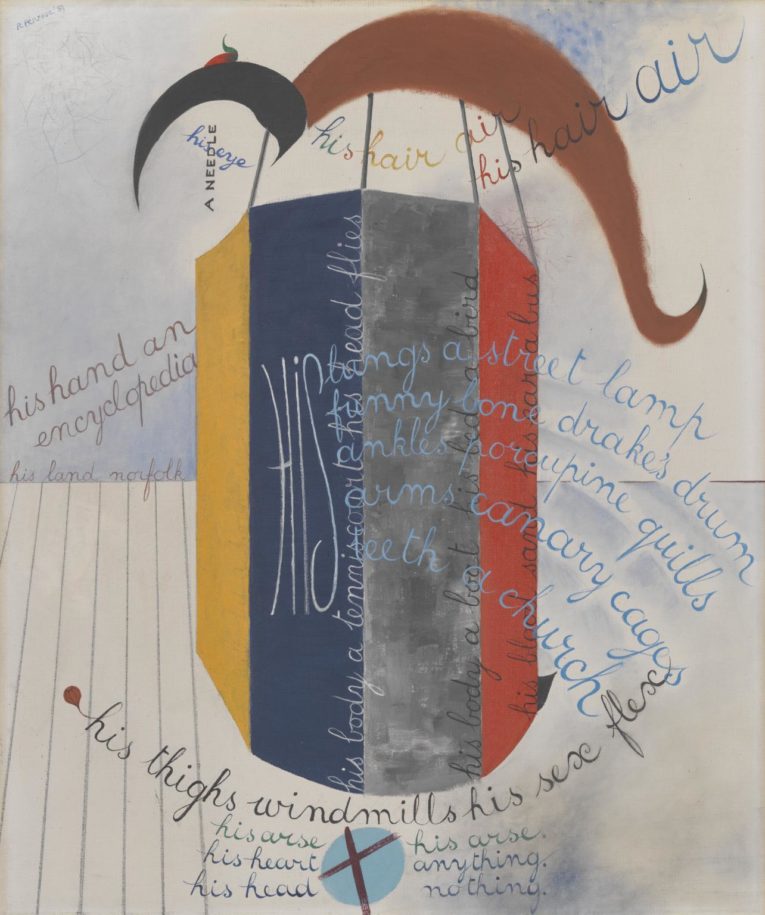 R PENROSE 39
his eye
A NEEDLE
his hair air
his hair air
his hand an
encyclopedia
his land norfolk
HIS
a street lamp
funny bone drake's drum
ankles porcupine quills
arms canary cages
teeth a church
his body a tennis court his head flies
his body a boat his bed a bird
his blood sand his ear a bus
his thighs windmills his sex flex
his arse his arse.
his heart anything.
his head nothing.